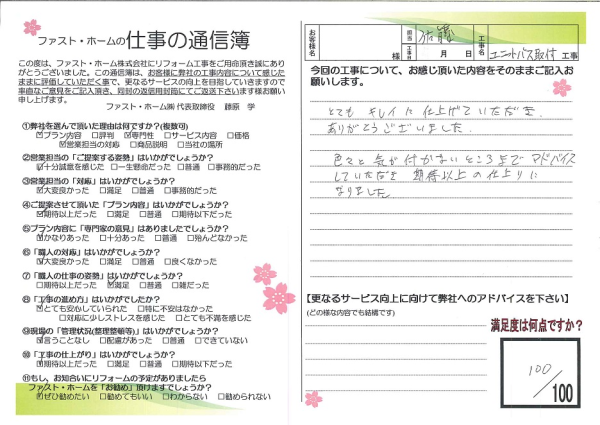 ファスト・ホームの仕事の通信簿
この度は、ファスト・ホーム株式会社にリフォーム工事をご用命頂き誠にあり
がとうございました。この通信簿は、お客様に弊社の工事内容について感じた
ままに評価していただく事で、更なるサービスの向上を目指していきますので
率直なご意見をご記入頂き、同封の返信用封筒にてご返送下さいます様お願い
申し上げます。
ファスト・ホーム㈱ 代表取締役 藤原 学
①弊社を選んで頂いた理由は何ですか?(複数可)
☑プラン内容 □評判 ☑専門性 □サービス内容 □価格
☑営業担当の対応 □商品説明 □当社の場所
②営業担当の「ご提案する姿勢」はいかがでしょうか?
☑十分誠意を感じた □一生懸命だった □普通 □事務的だった
③営業担当の「対応」はいかがでしょうか?
☑大変良かった □満足 □普通 □事務的だった
④ご提案させて頂いた「プラン内容」はいかがでしょうか?
☑期待以上だった □満足 □普通 □期待以下だった
⑤プラン内容に「専門家の意見」はありましたでしょうか?
☑かなりあった □十分あった □普通 □殆んどなかった
⑥「職人の対応」はいかがでしょうか?
☑大変良かった □満足 □普通 □良くなかった
⑦「職人の仕事の姿勢」はいかがでしょうか?
☑期待以上だった □満足 □普通 □雑だった
⑧「工事の進め方」はいかがでしたか?
☑とても安心していられた □特に不安はなかった
□対応に少しストレスを感じた □とても不満を感じた
⑨現場の「管理状況(整理整頓等)」はいかがでしょうか?
☑言うことなし □配慮があった □普通 □できていない
⑩「工事の仕上がり」はいかがでしょうか?
☑期待以上だった □満足 □普通 □期待以下だった
⑪もし、お知合いにリフォームの予定がありましたら
ファスト・ホームを「お勧め」頂けますでしょうか?
☑ぜひ勧めたい □勧めてもいい □わからない □勧められない
お客様名 様 担当 佐藤 工事日 月 日 工事名 ユニットバス取付 工事
今回の工事について、お感じ頂いた内容をそのままご記入お
願いします。
とても キレイに 仕上げていただき
ありがとうございました。
色々と 気が 付かないところまで アドバイス
していただき 期待以上の仕上りに
なりました
【更なるサービス向上に向けて弊社へのアドバイスを下さい】
(どの様な内容でも結構です)
満足度は何点ですか?
100/100